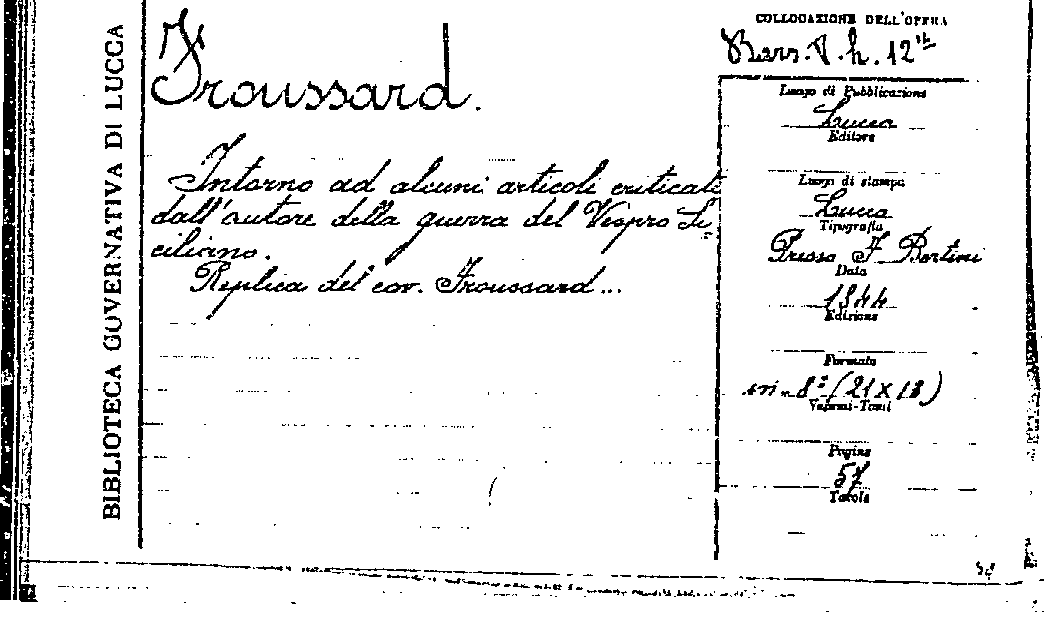 BIBLIOTECA GOVERNATIVA DI LUCCA
Froussard.
Intorno ad alcuni articoli criticati
dall'autore della guerra del Vespro Si=
ciliano.
Replica del cav. Froussard...
COLLOCAZIONE DELL'OPERA
Bars. V. h. 12
Luogo di Pubblicazione
Lucca
Editore
Luogo di stampa
Lucca
Tipografia
Presso F. Bertini
Data
1844
Edizione
Formato
in-8º (21 x 13)
Volumi-Tomi
Pagine
57
Tavole